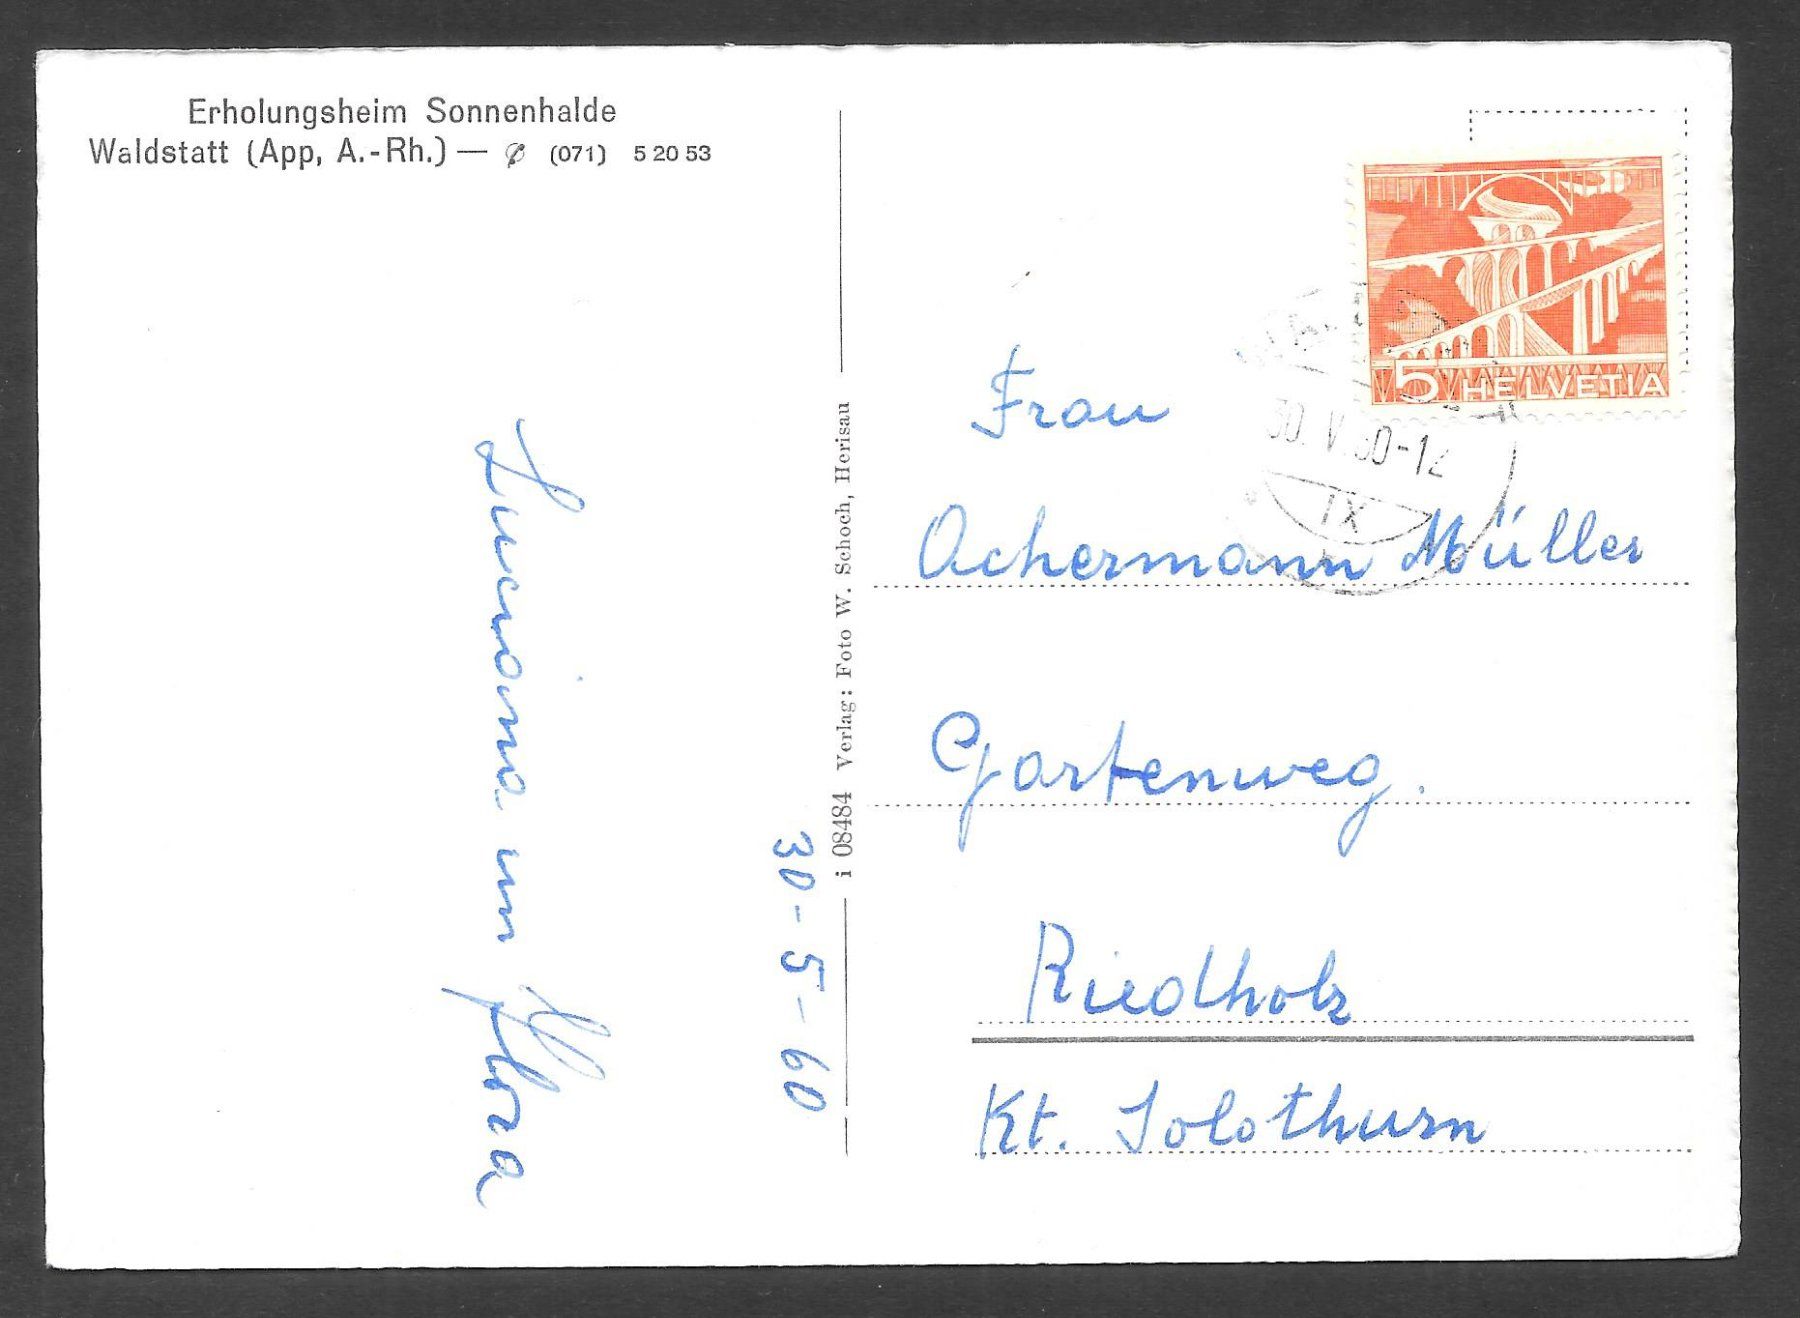 Erholungsheim Sonnenhalde
Waldstatt (App, A.-Rh.) — (071) 5 20 53
Luciana un Flora
30-5-60
i 08484 Verlag: Foto W. Schoch, Herisau
5 HELVETIA
30. V. 60-12
IX
Frau
Achermann Müller
Gartenweg.
Riedholz
Kt. Solothurn